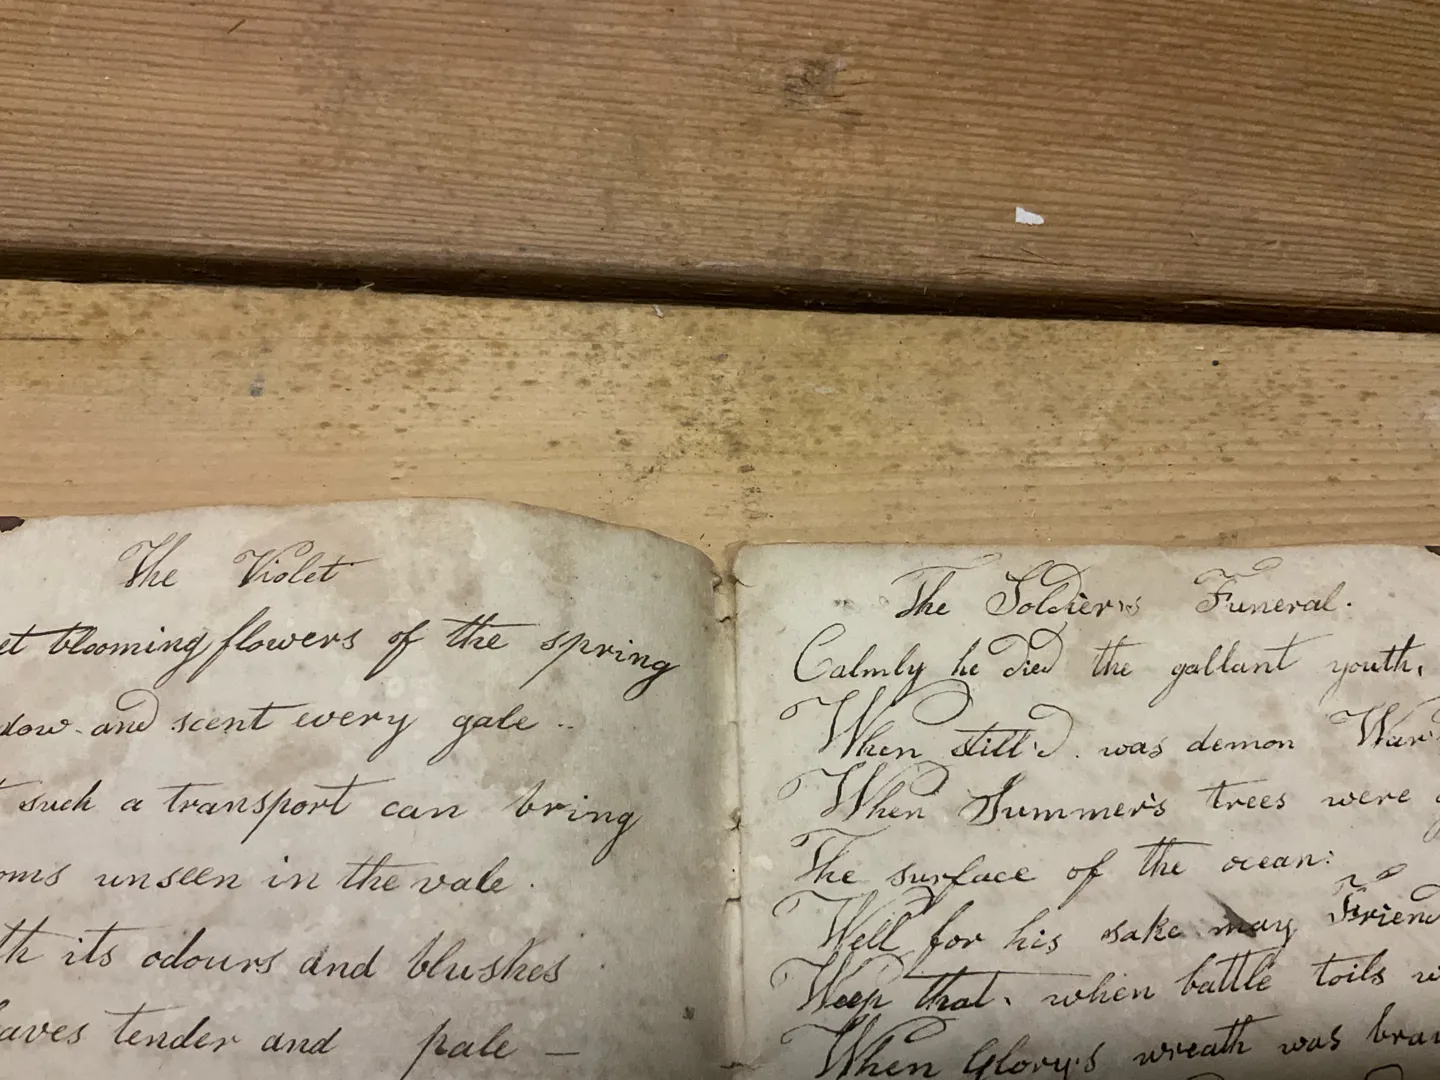 The Violet
blooming flowers of the spring
and scent every gale ..
such a transport can bring
unseen in the vale.
its odours and blushes
tender and pale —
The Soldier's Funeral.
Calmly he died the gallant youth,
When still'd. was demon War
When Summer's trees were
The surface of the ocean:
Well for his sake may Friend
Weep that, when battle toils
When Glory's wreath was